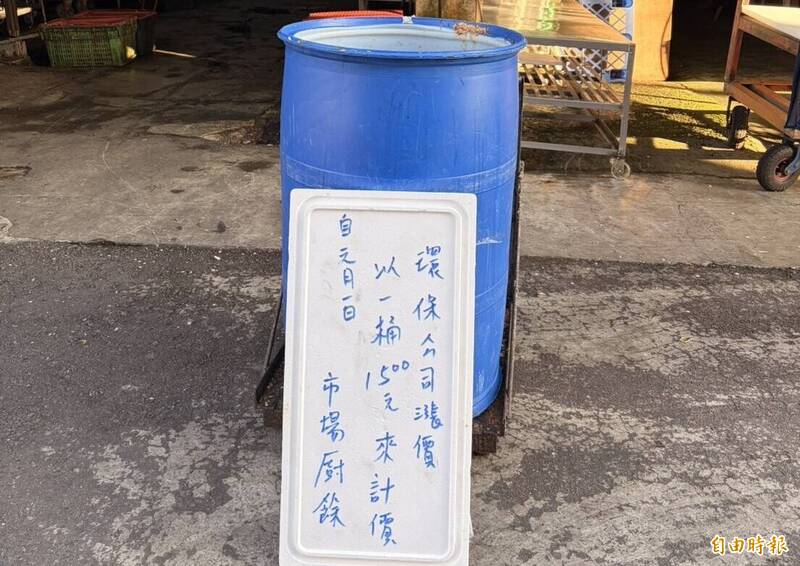 環保公司漲價
以一桶1500元來計價
自元月一日 市場廚餘
自由時報